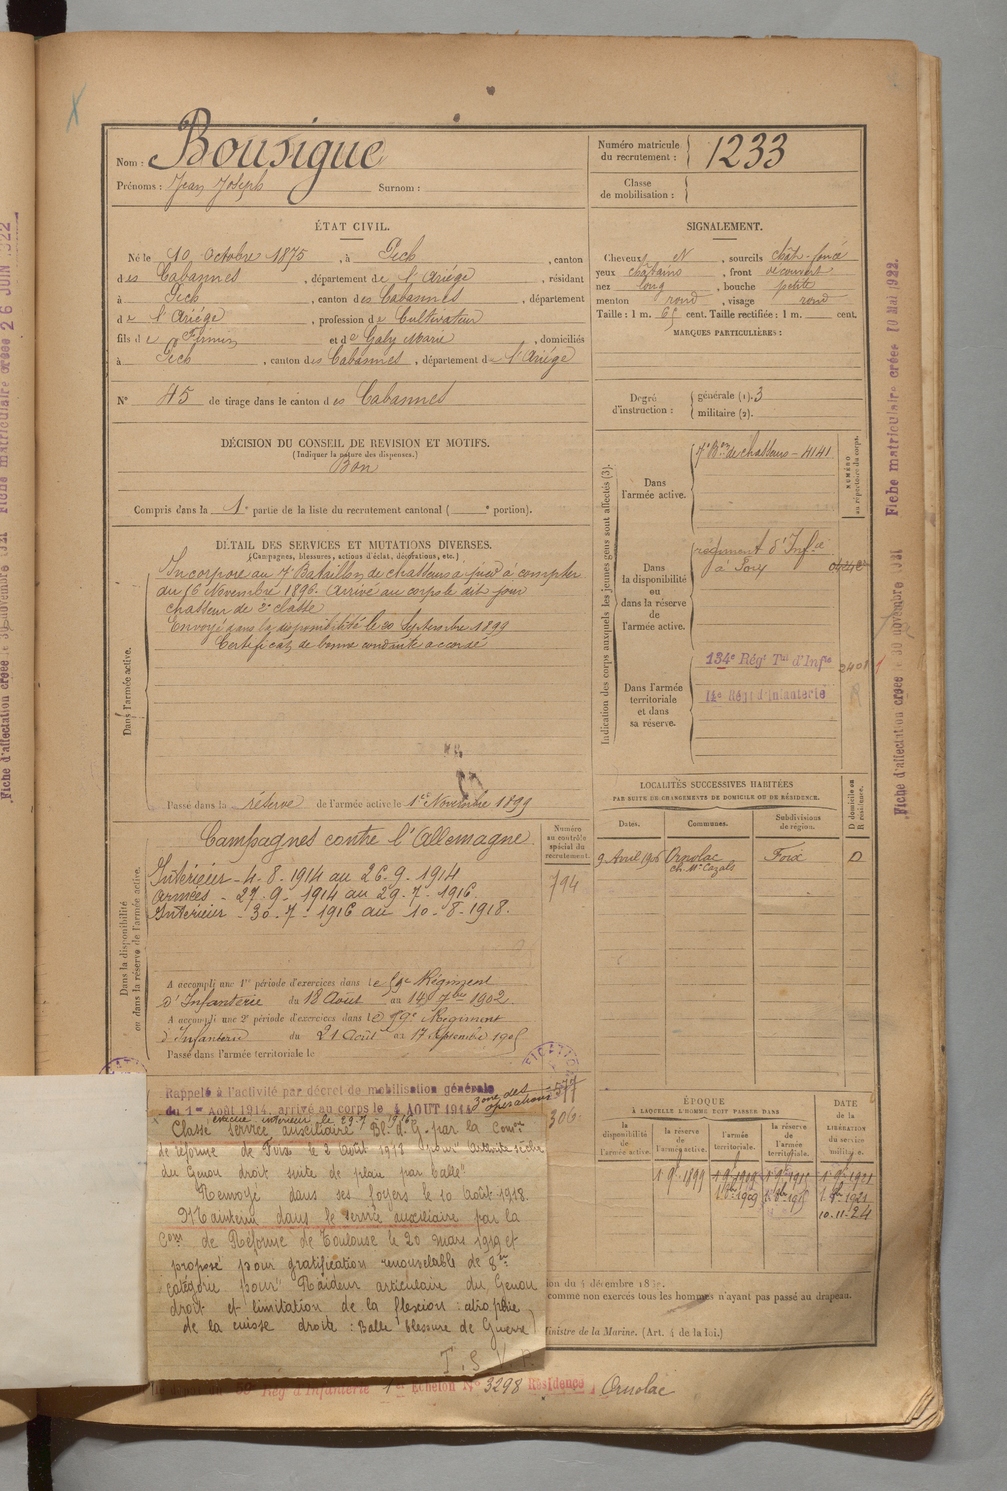 Nom : Bousigue
Prénoms : Jean Joseph Surnom :
Numéro matricule du recrutement : 1233
Classe de mobilisation :
ÉTAT CIVIL.
Né le 10 Octobre 1875, à Pech, canton
des Cabannes, département de l'Ariège, résidant
à Pech, canton des Cabannes, département
de l'Ariège, profession de Cultivateur
fils de Firmin et de Galy Marie, domiciliés
à Pech, canton des Cabannes, département de l'Ariège
N° 45 de tirage dans le canton des Cabannes
SIGNALEMENT.
Cheveux N, sourcils chât-foncé
yeux châtains, front découvert
nez long, bouche petite
menton rond, visage rond
Taille : 1 m. 65 cent. Taille rectifiée : 1 m. cent.
MARQUES PARTICULIÈRES :
DÉCISION DU CONSEIL DE REVISION ET MOTIFS.
(Indiquer la nature des dispenses.)
Bon
Compris dans la 1e partie de la liste du recrutement cantonal ( e portion).
Degré d'instruction : générale (1). 3
militaire (2).
DÉTAIL DES SERVICES ET MUTATIONS DIVERSES.
(Campagnes, blessures, actions d'éclat, décorations, etc.)
Dans l'armée active.
Incorporé au 7e Bataillon de chasseurs à pied à compter
du 16 Novembre 1896. Arrivé au corps le dit jour
chasseur de 2e classe
Envoyé dans la disponibilité le 20 Septembre 1899
Certificat de bonne conduite accordé
Passé dans la réserve de l'armée active le 1er Novembre 1899
Indication des corps auxquels les jeunes gens sont affectés (3).
NUMÉRO au répertoire du corps.
Dans l'armée active.
7e Bon de chasseurs - 4141
Dans la disponibilité ou dans la réserve de l'armée active.
régiment d'Infie
à Foix
Dans l'armée territoriale et dans sa réserve.
134e Régt Tal d'Infie
14e Régt d'Infanterie
LOCALITÉS SUCCESSIVES HABITÉES
PAR SUITE DE CHANGEMENTS DE DOMICILE OU DE RÉSIDENCE.
Dates. Communes. Subdivisions de région. D domicile ou R résidence.
9 Avril 1906 Ornolac Foix D
ch. Mr Cazals
Dans la disponibilité ou dans la réserve de l'armée active.
Campagnes contre l'Allemagne
Numéro au contrôle spécial du recrutement.
794
Intérieur - 4.8.1914 au 26.9.1914
Armées - 27.9.1914 au 29.7.1916
Intérieur - 30.7.1916 au 10.8.1918.
A accompli une 1re période d'exercices dans le 59e Régiment
d'Infanterie du 18 Août au 14 7bre 1902.
A accompli une 2e période d'exercices dans le 59e Régiment
d'Infanterie du 21 Août au 17 Septembre 1905
Passé dans l'armée territoriale le
Rappelé à l'activité par décret de mobilisation générale
du 1er Août 1914, arrivé au corps le 4 AOUT 1914
zone des opérations
306
Classé service auxiliaire Bl. d. G. par la Comon
de réforme de Foix le 2 août 1918 pour
du Genou droit suite de plaie par balle"
Renvoyé dans ses foyers le 10 Août 1918.
Maintenu dans le service auxiliaire par la
Comon de Réforme de Toulouse le 20 mars 1919 et
proposé pour gratification renouvelable de 8me
catégorie pour "Raideur articulaire du Genou
droit et limitation de la flexion : atrophie
de la cuisse droite : Balle blessure de Guerre)
T. S. V. P.
ÉPOQUE
À LAQUELLE L'HOMME DOIT PASSER DANS
la disponibilité de l'armée active. la réserve de l'armée active. l'armée territoriale. la réserve de l'armée territoriale.
DATE de la LIBÉRATION du service militaire.
10-11-24
comme non exercés tous les hommes n'ayant pas passé au drapeau.
Ministre de la Marine. (Art. 4 de la loi.)
Rég d'Infanterie 1er Echelon N° 3298 Résidence Ornolac
Fiche matriculaire créée 10 Mai 1922.
Fiche d'affectation créée le 30 novembre 1921